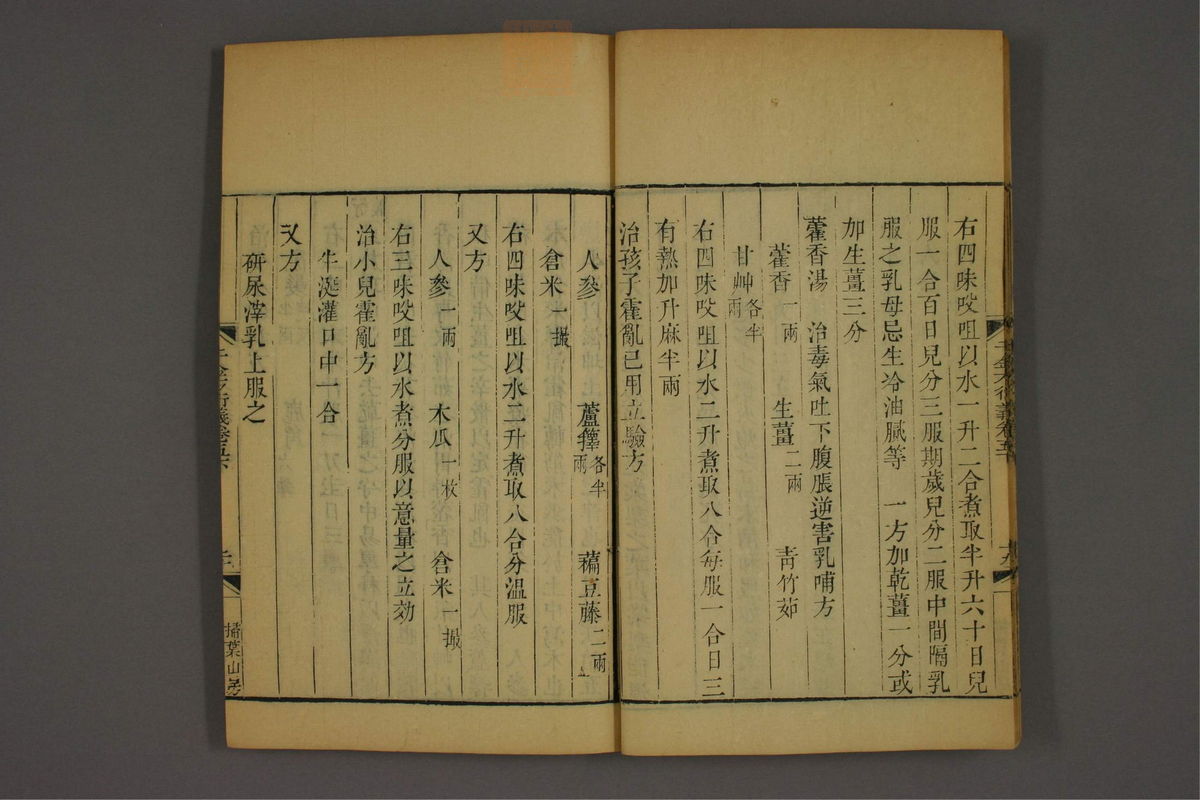 右四味㕮咀以水一升二合煮取半升六十日兒
服一合百日兒分三服期歲兒分二服中間隔乳
服之乳母忌生冷油膩等　一方加乾薑一分或
加生薑三分
藿香湯　治毒氣吐下腹脹逆害乳哺方
藿香一兩　生薑二兩　青竹茹
甘艸各半兩
右四味㕮咀以水二升煮取八合每服一合日三
有熱加升麻半兩
治孩子霍亂已用立驗方
人參　蘆籜各半兩　藊豆藤二兩
倉米一撮
右四味㕮咀以水二升煮取八合分溫服
又方
人參一兩　木瓜一枚　倉米一撮
右三味㕮咀以水煮分服以意量之立効
治小兒霍亂方
牛涎灌口中一合
又方
研尿滓乳上服之
千金方衍義卷五下
掃葉山房